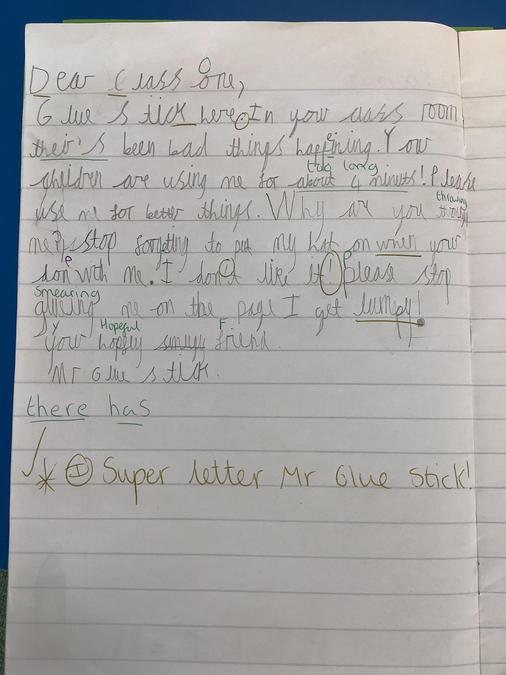 Dear Class One,
Glue Stick here. In your class room
their's been bad things happening. Your
too long
children are using me for about 4 minuts! Please
throwing
use me for better things. Why are you
me? stop forgeting to put my hat on when your
don with me. I don't like it! please stop
smearing
me on the page I get lumpy!
Hopeful
your friend.
Mr Glue stick.
there has
✓
* I Super letter Mr Glue Stick!